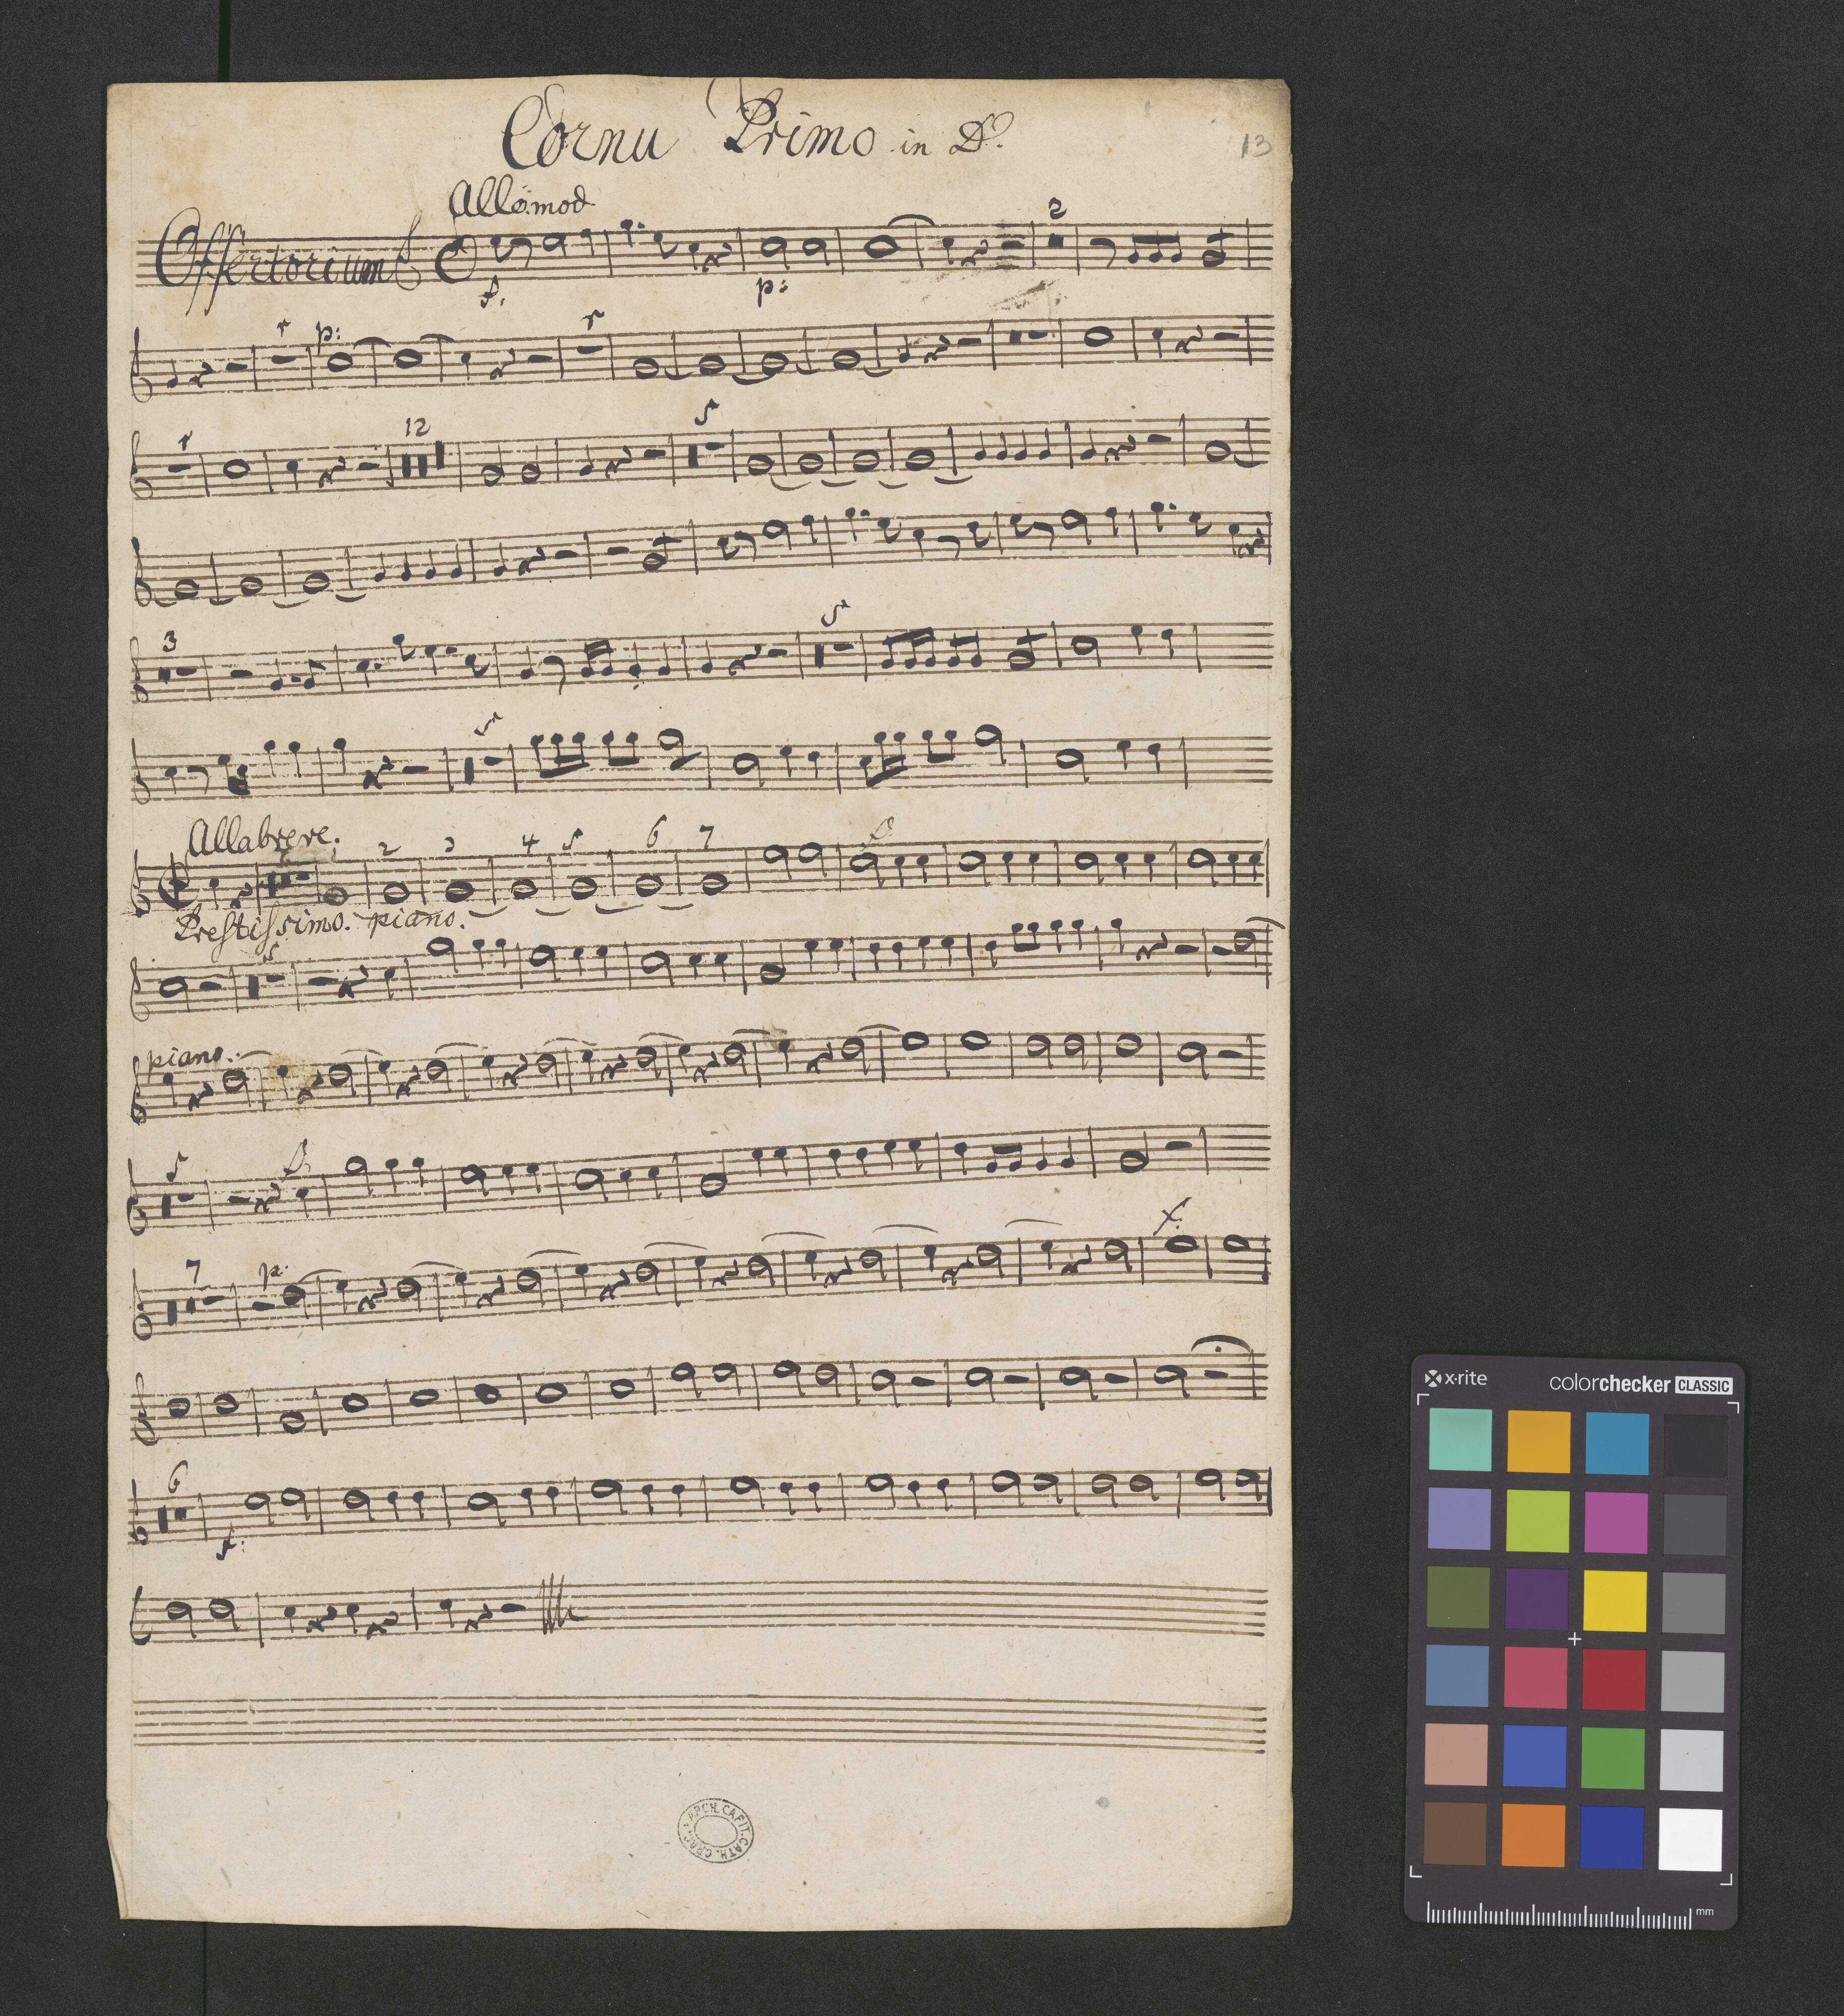 Cornu Primo in D?
13
Allo: mod
Offertorium
f.
p:
2
p:
12
3
Allabreve.
2 3 4 5 6 7
f
Prestissimo. piano.
5
piano.
5
f.
7
p.
f.
6
f.
ARCH. CAPIT. CATH. CRAC.
x-rite
colorchecker CLASSIC
mm